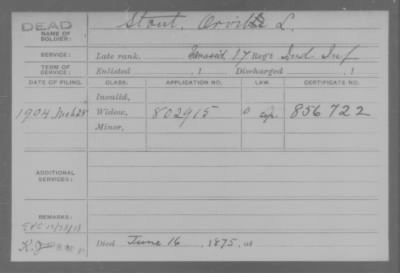 DEAD
NAME OF SOLDIER:
Stout, Orville L.
SERVICE:
Late rank, 17 Reg't Ind Inf
TERM OF SERVICE:
Enlisted , 1 Discharged , 1
DATE OF FILING. CLASS. APPLICATION NO. LAW. CERTIFICATE NO.
Invalid,
1904 Mch 28 Widow, 802915 O 856722
Minor,
ADDITIONAL SERVICES:
REMARKS:
Died June 16, 1875, at